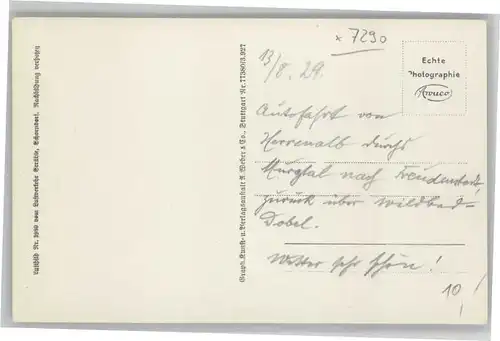 Luftbild Nr. 1090 vom Luftverkehr Strähle, Schorndorf. Nachbildung verboten
Graph. Kunst- u. Verlagsanstalt A. Weber & Co., Stuttgart Nr. 77380/3.927
x 7290
13/8. 29.
Echte
Photographie
Awuco
Autofahrt von
Herrenalb durchs
Murgtal nach Freudenstadt,
zurück über Wildbad-
Dobel.
Wetter sehr schön!
10